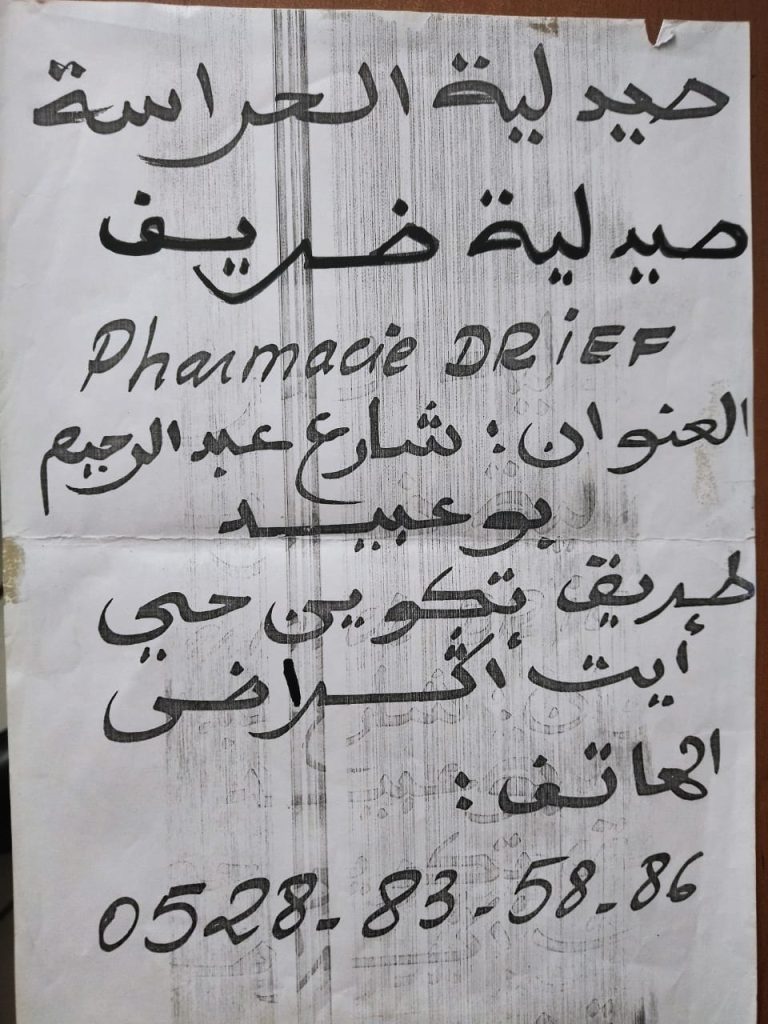 صيدلية الحراسة
صيدلية ضريف
Pharmacie DRiEF
العنوان: شارع عبد الرحيم
بوعبيد
طريق تكوين حي
أيت أڭلاض
الهاتف:
0528-83-58-86